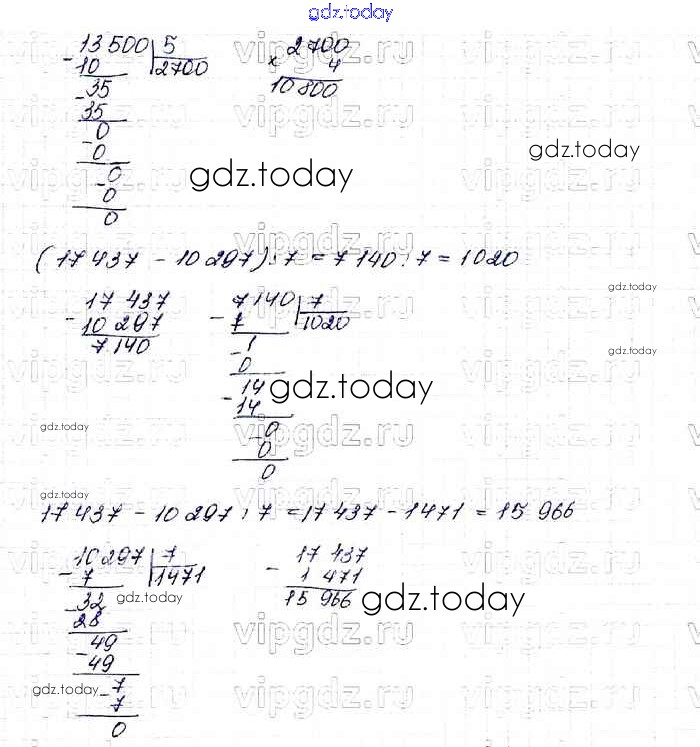 gdz.today
13 500 | 5
- 10
2700
- 35
35
0
- 0
0
- 0
0
2700
× 4
10 800
gdz.today
gdz.today
(17 437 - 10 297) : 7 = 7 140 : 7 = 1020
17 437
- 10 297
7 140
7 140 | 7
- 7
1020
- 1
0
14
- 14
0
- 0
0
gdz.today
gdz.today
gdz.today
gdz.today
gdz.today
17 437 - 10 297 : 7 = 17 437 - 1471 = 15 966
10 297 | 7
- 7
1471
- 32
28
49
- 49
7
- 7
0
17 437
- 1 471
15 966
gdz.today
gdz.today
gdz.today
gdz.today
vipgdz.ru